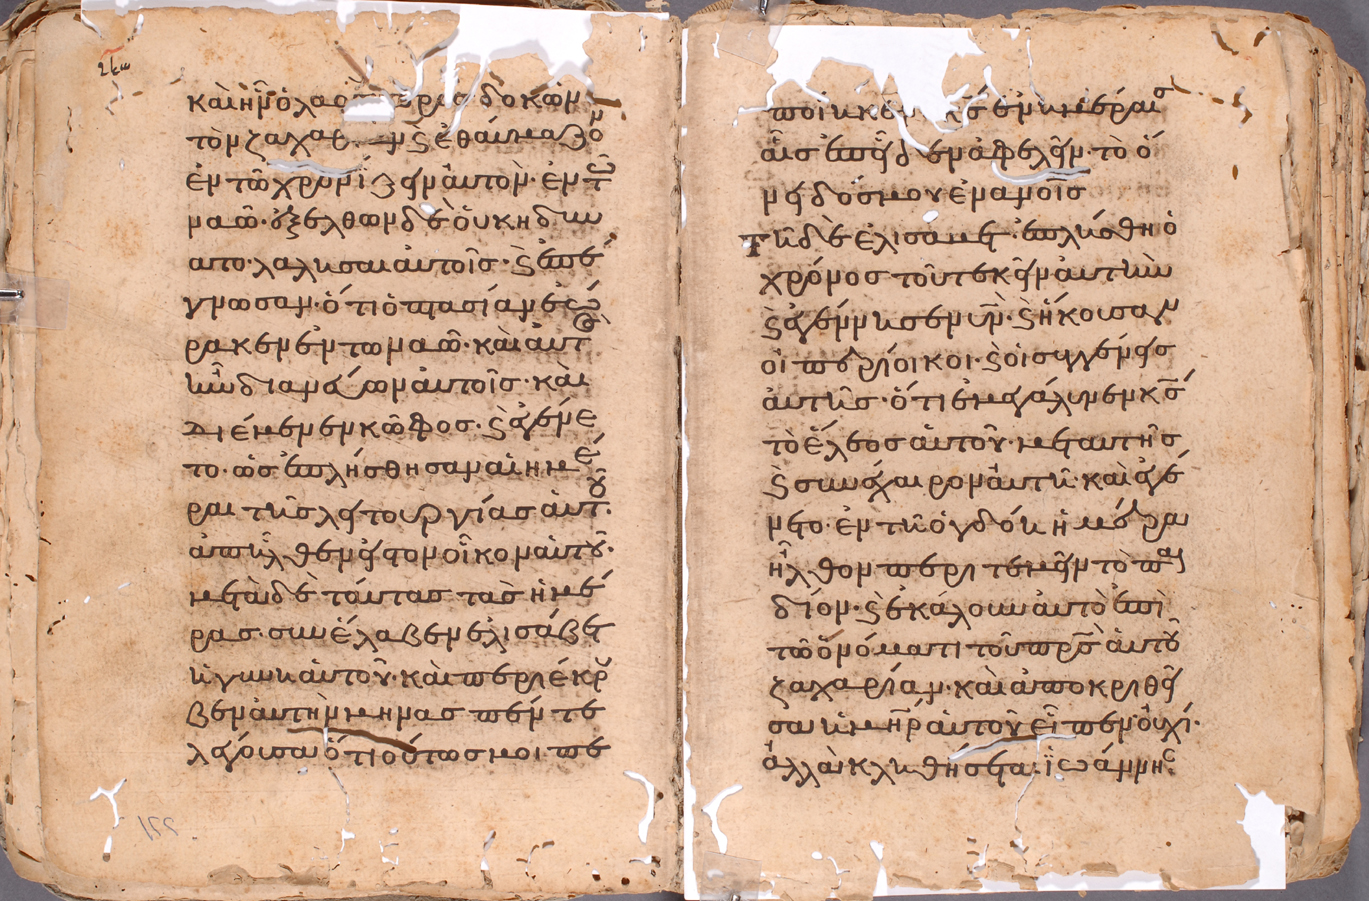 καὶ ἦν ὁ λαὸς προσδοκῶν
τὸν ζαχαρίαν ϗ ἐθαύμαζον
ἐν τῶ χρονίζειν αὐτὸν· ἐν τῶ
ναῶ· ἐξελθων δὲ οὐκ ηδυν
ατο· λαλησαι αὐτοῖς· ϗ ἐπέ
γνωσαν· ὅτι ὀπτασίαν ἑώ
ρακεν ἐν τω ναῶ· καὶ αὐτὸς
ἦν διανεύων αὐτοῖς· καὶ
διέμενεν κῶφος· ϗ ἐγένε
το· ὡς ἐπλήσθησαν αἱ ημέ
ραι τῆς λειτουργίας αὐτοῦ·
ἀπῆλθεν εἰς τον οἶκον αὐτοῦ·
μετὰ δὲ τάυτας τὰς ἡμέ
ρας· συνέλαβεν ἐλισάβετ
ἡ γυνη αὐτοῦ· καὶ περιέκρυ
βεν ἁυτὴν μηνας πέντε
λέγουσα ὁτι οὕτως μοι πε
ποίηκεν ὁ κς ἐν ἡμέραις
αἷς ἐπεῖδεν ἀφελεῖν· τὸ ὄ
νειδός μου ἐν ανοῖς
Τῆ δὲ ἐλισαβετ ἐπλήσθη ὁ
χρόνος τοῦ τεκεῖν αὐτὴν
ϗ ἐγέννησεν υν· ϗ ἤκουσαν
οἱ περίοικοι· ϗ ὁι συγγένεις
ἀυτῆς· ὅτι ἐμεγάλυνεν κς
τὸ ἔλεος αὐτοῦ· μετ αυτῆς
ϗ συνέχαιρον αὐτῆ· καὶ ἐγέ
νετο· ἐν τῆ ὀγδόη ἡμέρα
ἦλθον περιτεμεῖν τὸ παι
δίον· ϗ ἐκάλουν αὐτὸ ἐπὶ
τῶ ὀνόματι τοῦ πρς αὐτοῦ
ζαχαρίαν· καὶ ἀποκριθεῖ
σα ἡ μηρ αὐτοῦ εἶπεν οὐχί·
ἀλλὰ κληθήσεται ἰωάννης